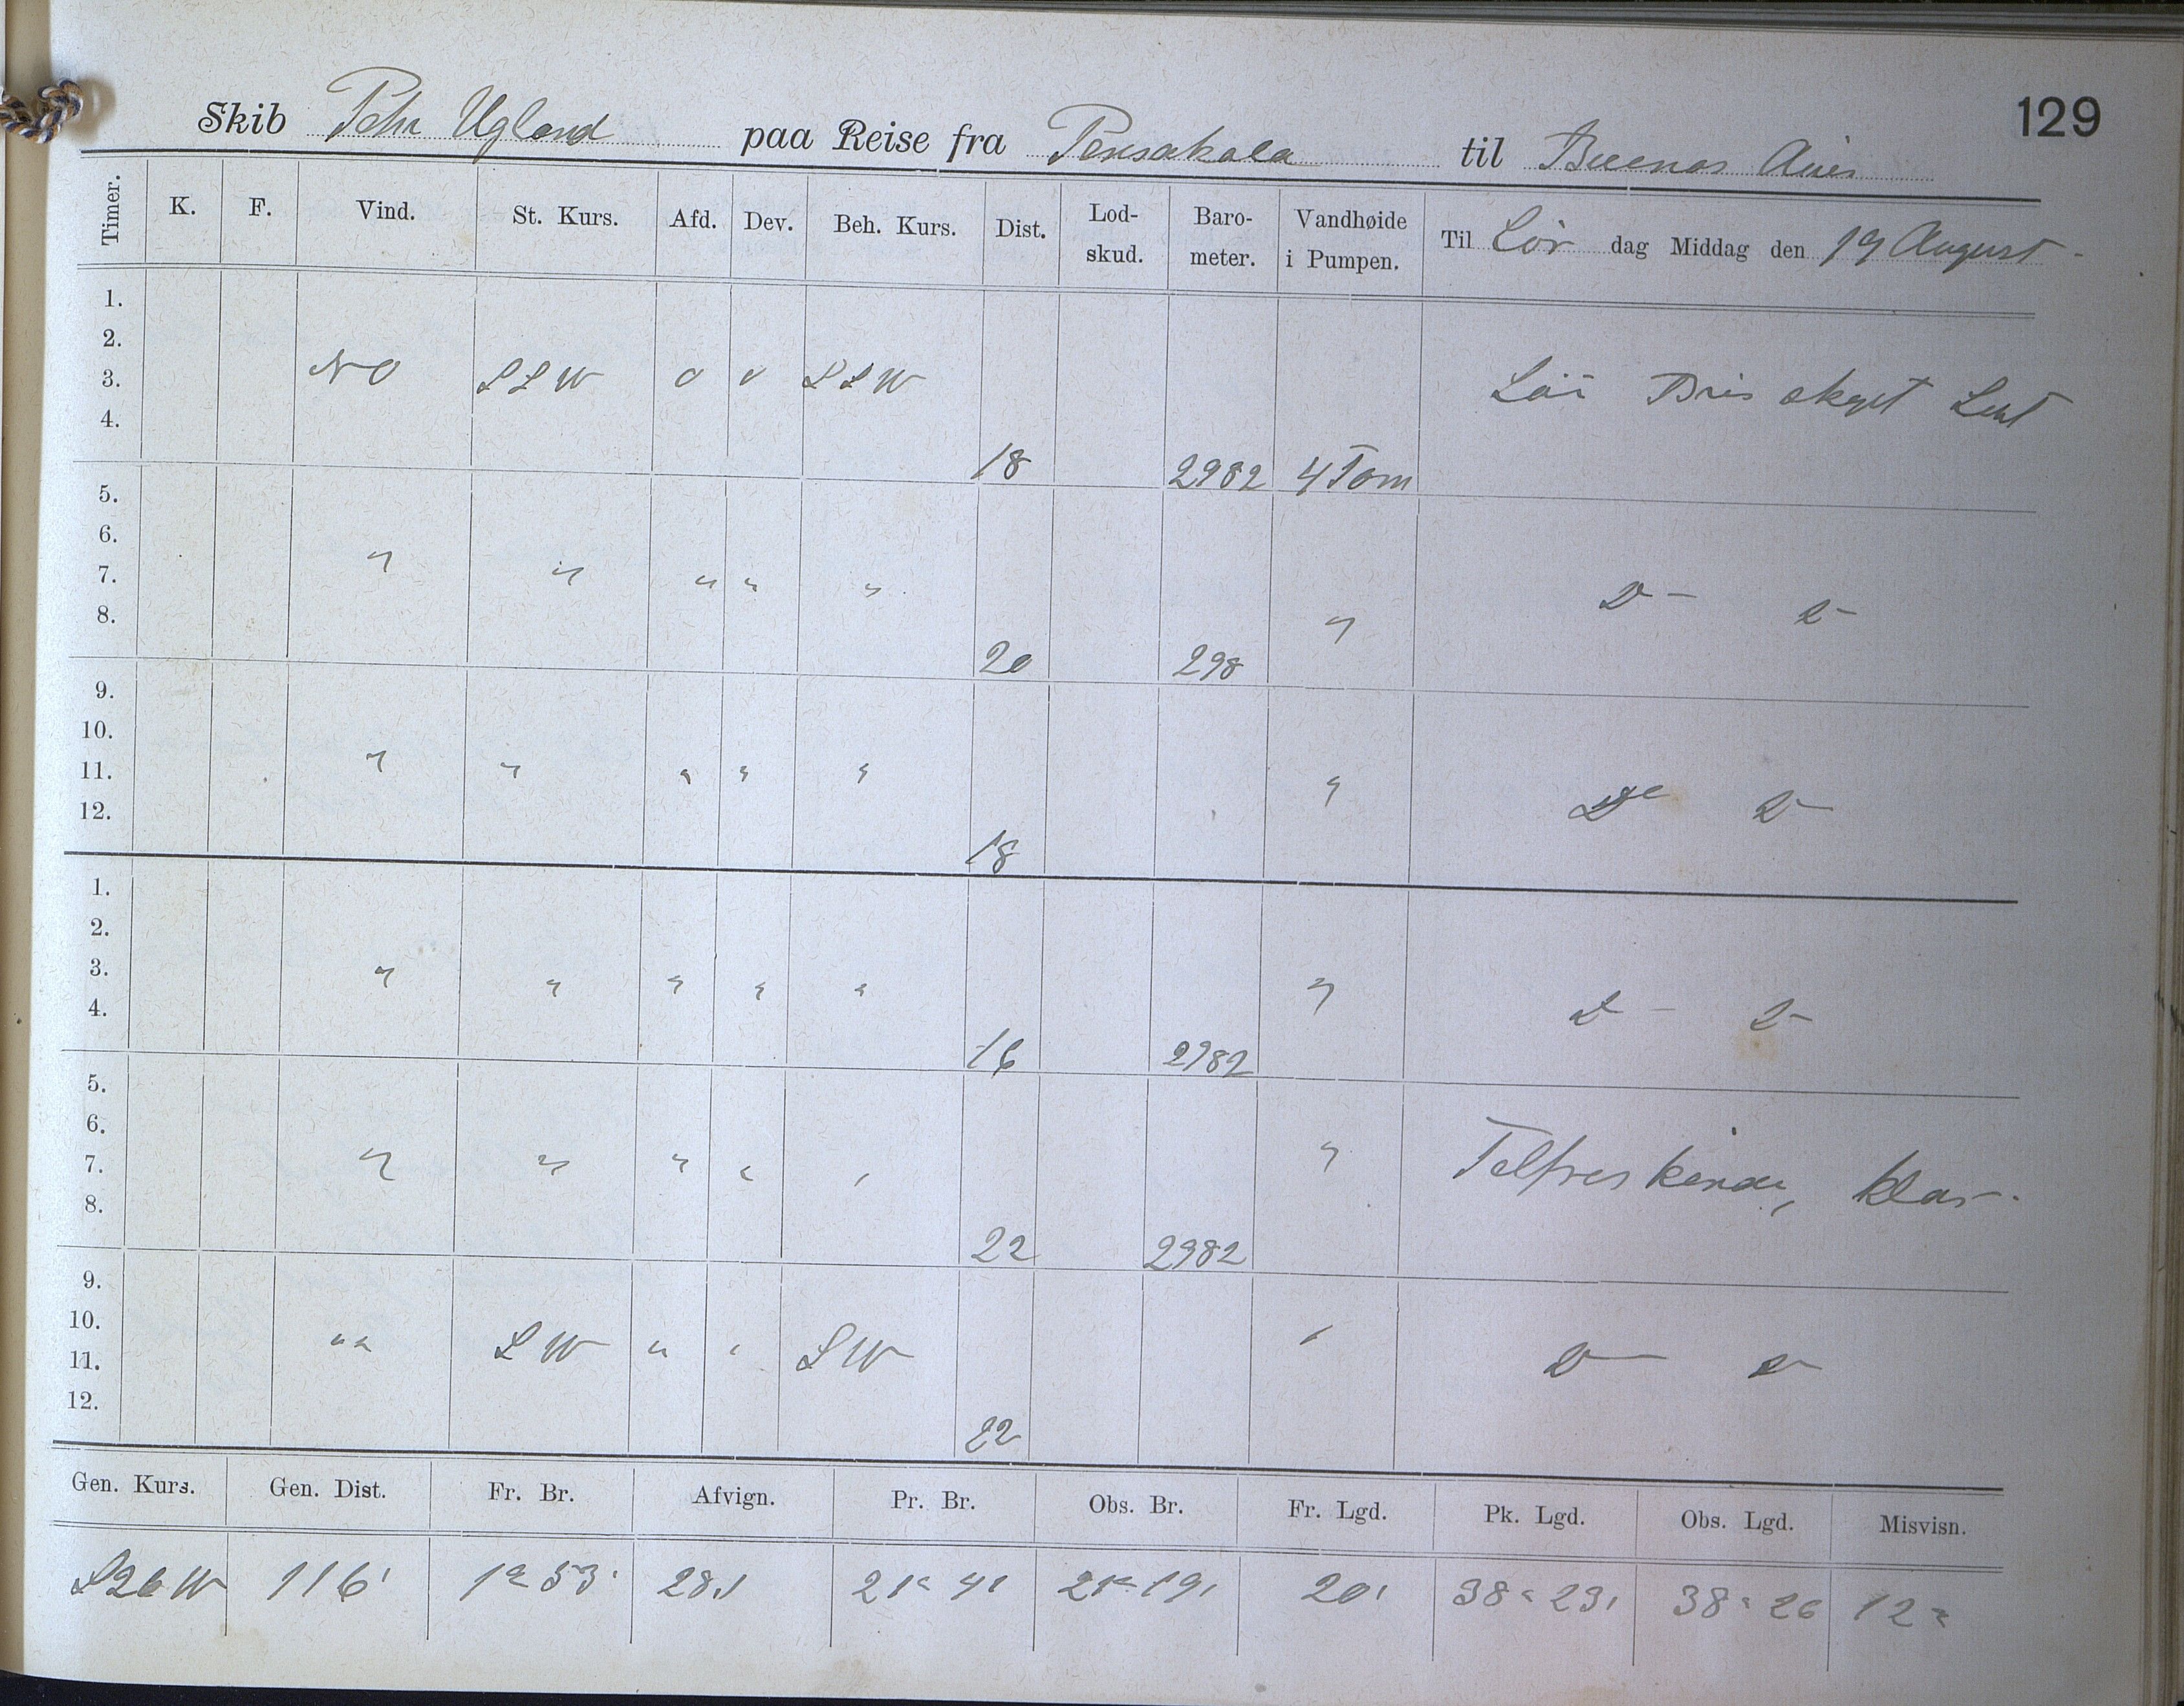 129
Skib Pehr Ugland paa Reise fra Pensakola til Buenos Aires
Timer. K. F. Vind. St. Kurs. Afd. Dev. Beh. Kurs. Dist. Lod-skud. Baro-meter. Vandhøide i Pumpen. Til Lör dag Middag den 19 August
1.
2.
3. NO SSW 0 0 SSW
4. 18 2982 4 Tom
5.
6.
7. " " " " " "
8. 20 298
9.
10.
11. " " " " " "
12. 18
1.
2.
3. " " " " " "
4. 16 2982
5.
6.
7. " " " " " " klar
8. 22 2982
9.
10. " SW " " SW "
11.
12. 22
Gen. Kurs. Gen. Dist. Fr. Br. Afvign. Pr. Br. Obs. Br. Fr. Lgd. Pk. Lgd. Obs. Lgd. Misvisn.
S26W 116' 1° 53' 28' 21° 4' 21° 19' 20' 38° 23' 38° 26 12°